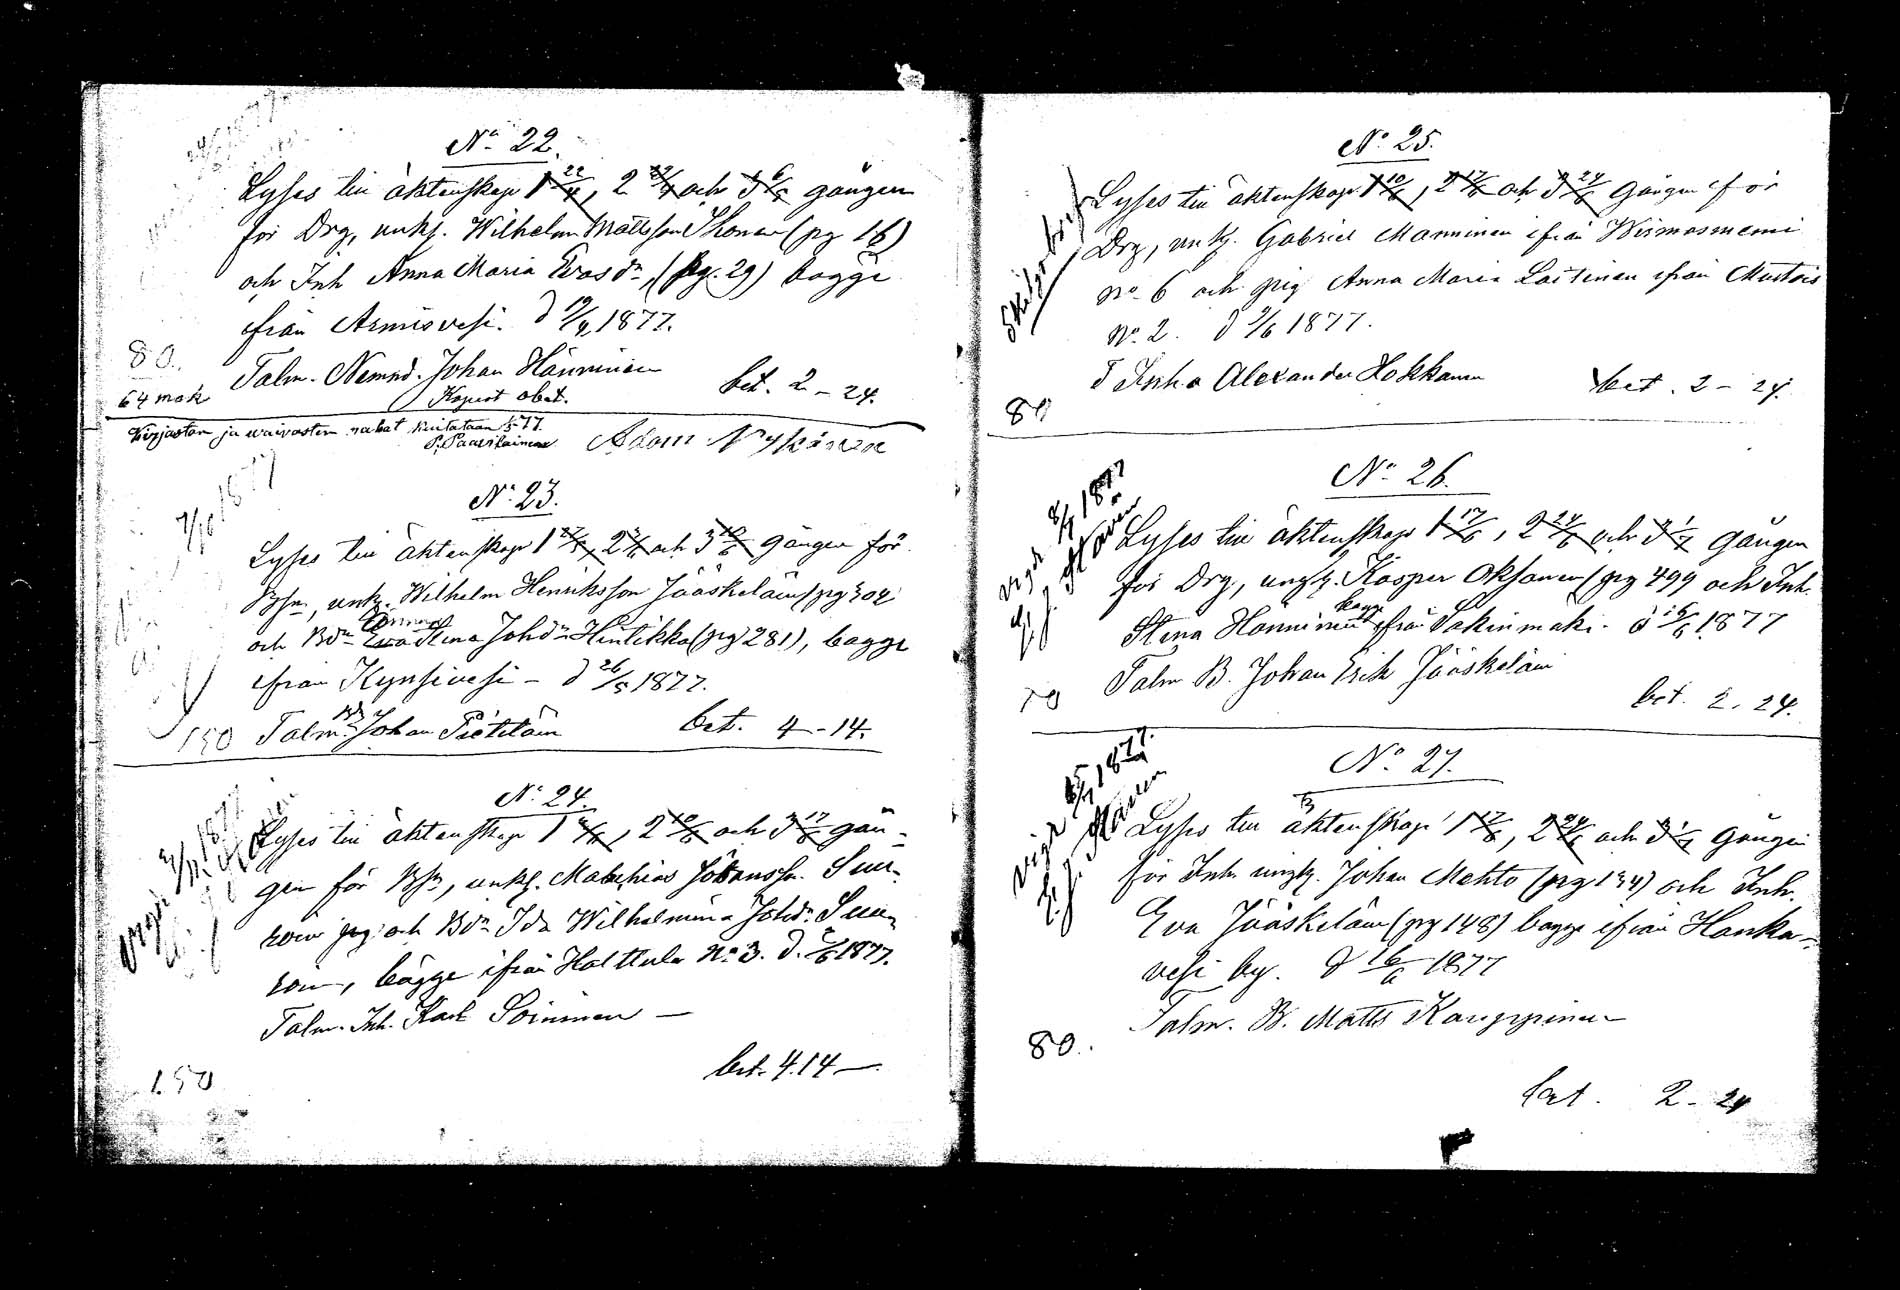 No 22.
Lyses till äktenskap 1 22/4, 2 29/4 och 3 6/5 gången
för Drg, unkj. Wilhelm Mattsson Ikonen (pg 16)
och Inh Anna Maria Evasdr, (pg. 29) bagge
ifrån Armisvesi. d 19/4 1877.
80.
Talm. Nemnd. Johan Hänninen
64 mak
Kopist obet.
bet. 2 - 24.
Kirjaston ja waivasten rahat kuitataan 77.
P. Paavilainen
Adam Nykänen
7/10 1877
No 23.
Lyses till äktenskap 1 27/5, 2 3/6 och 3 10/6 gången för
Bsn, unkj. Wilhelm Henriksson Jääskeläin (pg 302
och Bdr Eva Stina Johdr Hintikka (pg 281), bagge
ifrån Kynsivesi - d 26/5 1877.
150 Talm. Johan Pietiläin bet. 4 - 14.
No 24.
Lyses till äktenskap 1 3/6, 2 10/6 och 3 17/6 gån-
gen för Bsn, unkj. Mathias Johanss.
och Bdr Ida Wilhelmina Johdr
bägge ifrån Halttula No 3. d. 2/6 1877.
Talm. Inh. Karl Soininen -
bet. 4.14 -
1.50
No 25.
Lyses till äktenskap 1 10/6, 2 17/6 och 3 24/6 gången för
Drg, unkj. Gabriel Manninen ifrån Wirmasniemi
No 6 och pig Anna Maria Laitinen ifrån Mustois
No 2. d 9/6 1877.
T Inh. Alexander Hokkanen bet. 2 - 24.
80
No 26.
Vigde 8/7 1877
Lyses till äktenskap 1 17/6, 2 24/6 och 3 1/7 gången
för Drg, ungk. Kasper Oksanen (pg 499 och Inh.
Stina Hänninen bagge ifrån Lakinmäki. d 16/6 1877
Talm B. Johan Erik Jääskeläin
70
bet. 2. 24.
No 27.
Vigde 15/7 1877.
Lyses till äktenskap 1 17/6, 2 24/6 och 3 1/7 gången
för Inh. ungk. Johan Mehto (pg 134) och Inh.
Eva Jääskeläin (pg 148) bagge ifrån Hanka-
vesi by. d 16/6 1877
Talm. B. Matts Karppinen
80.
bet. 2 - 24